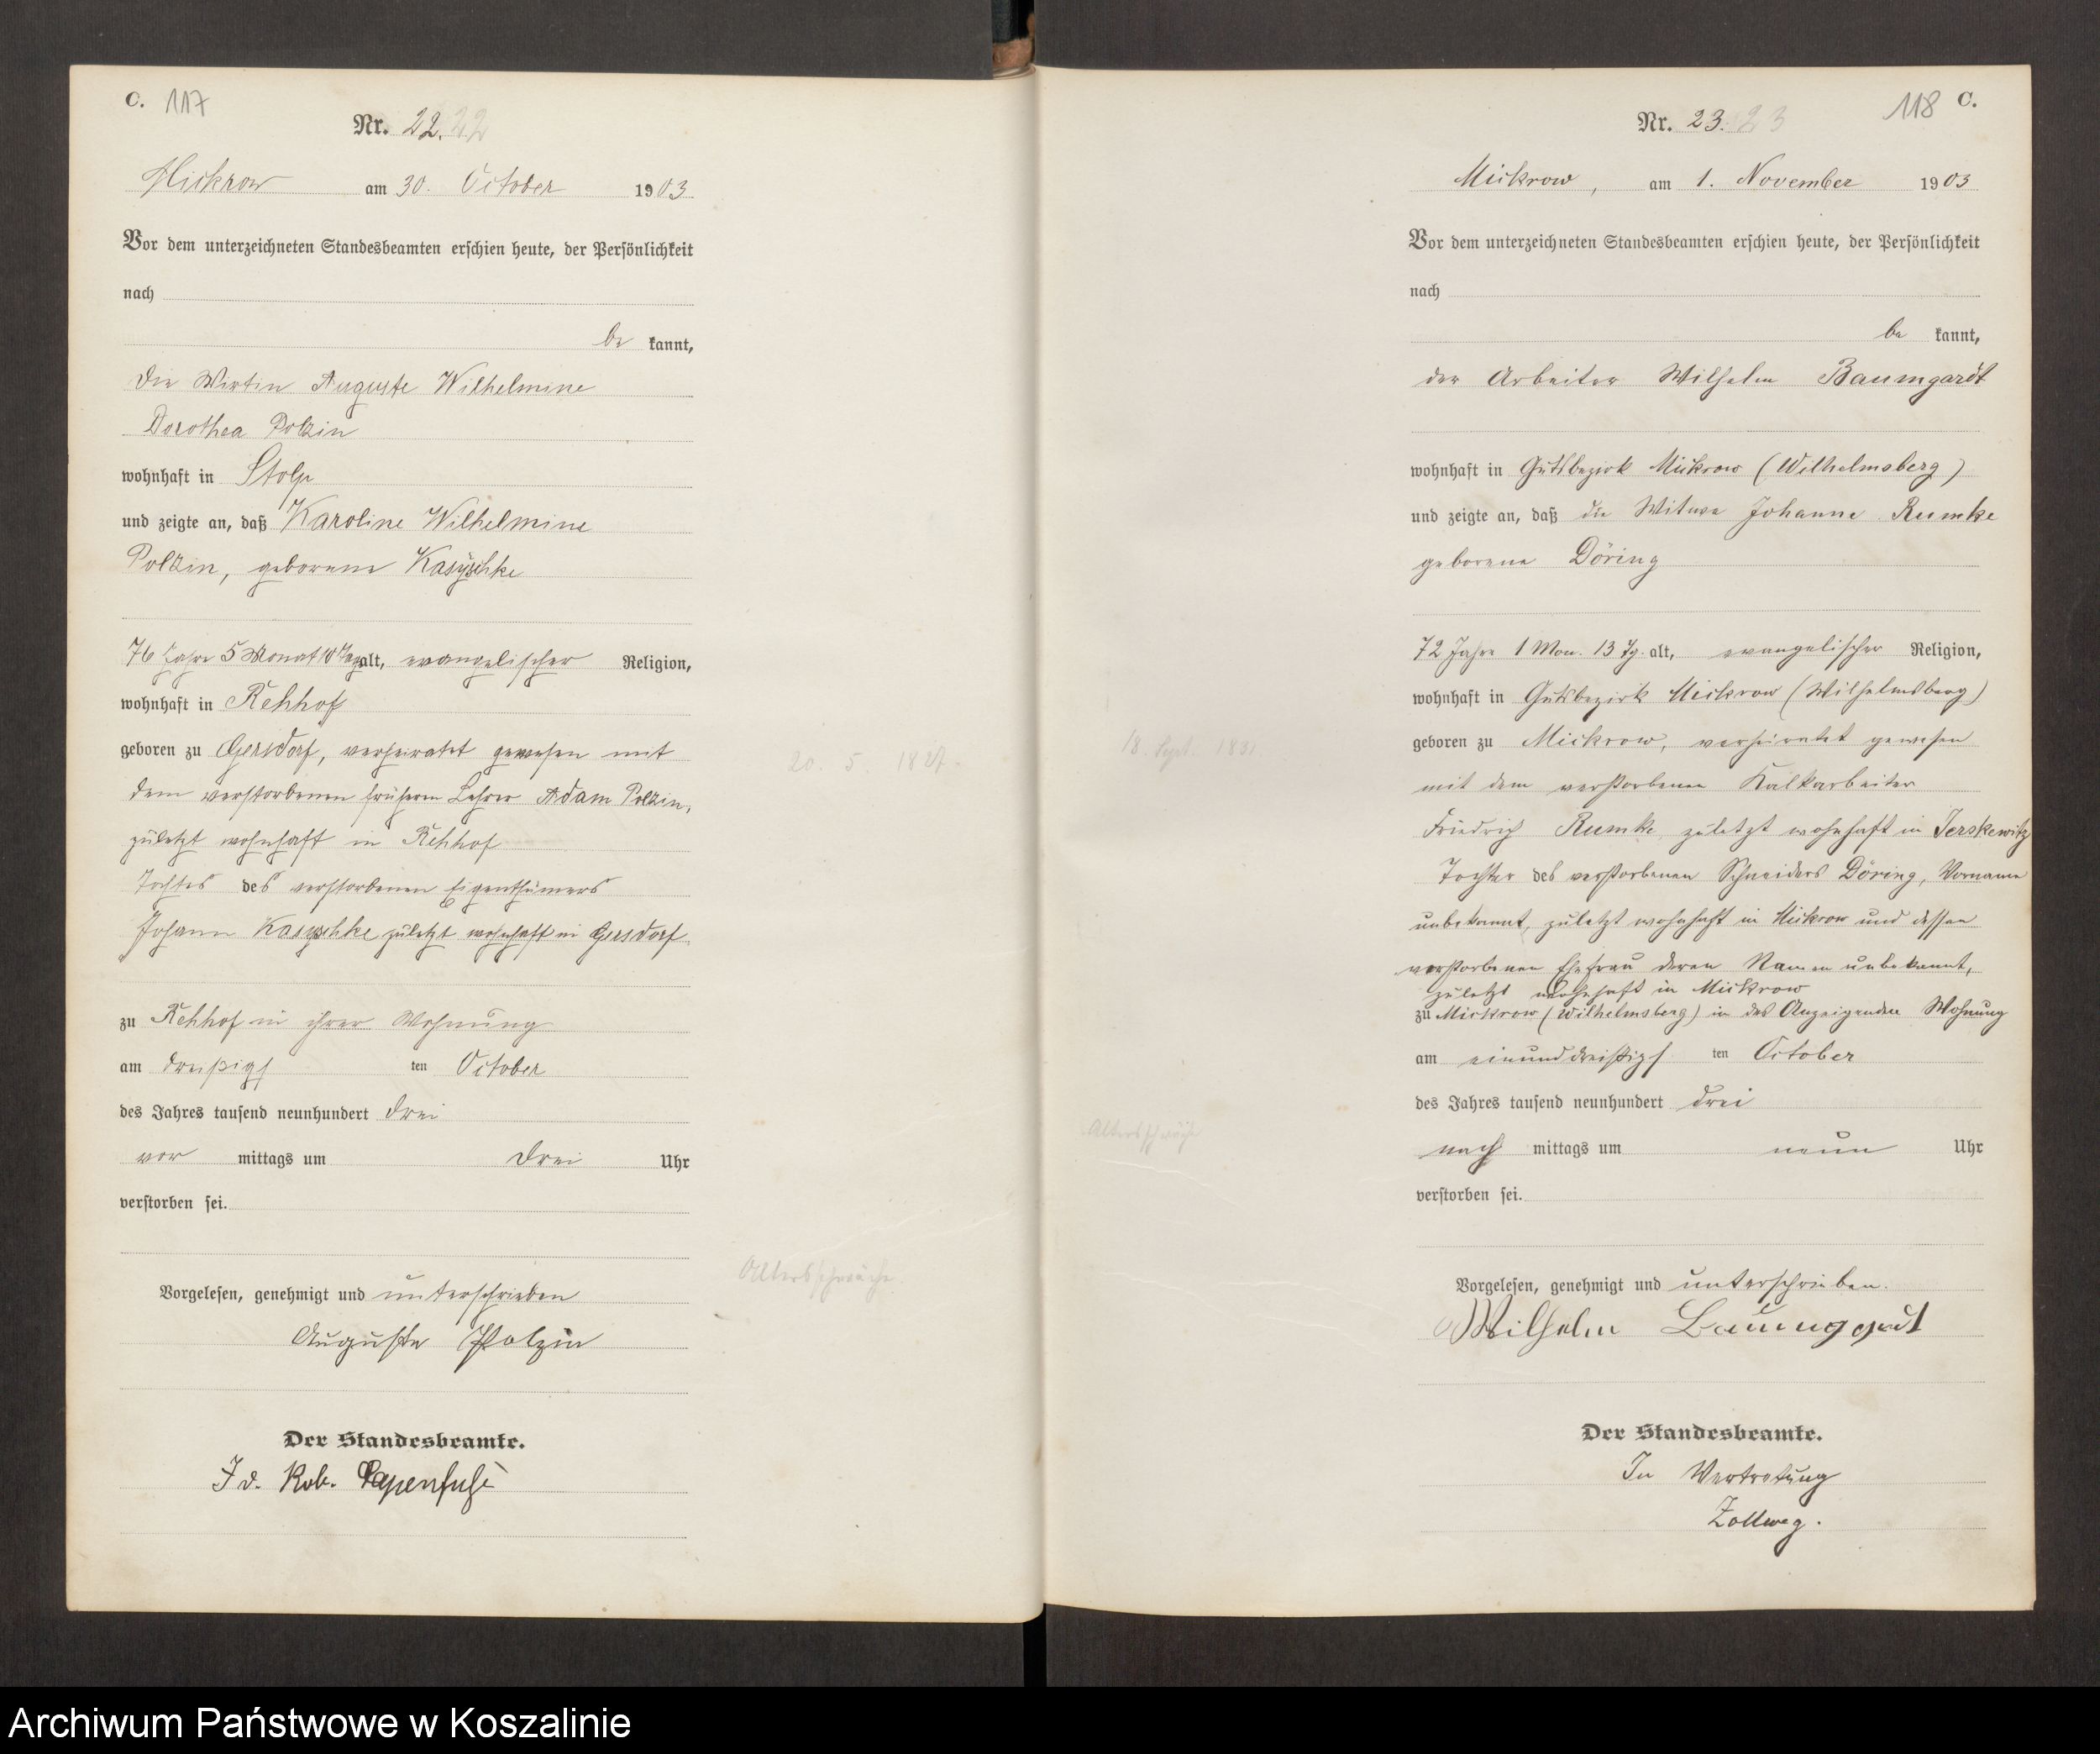 C. 117
Nr. 22. 22
Mickrow am 30. October 1903
Vor dem unterzeichneten Standesbeamten erschien heute, der Persönlichkeit
nach
be kannt,
die Wirtin Auguste Wilhelmine
Dorothea Polzin
wohnhaft in Stolp
und zeigte an, daß Karoline Wilhelmine
Polzin, geborene Kasischke
76 Jahre 5 Monat 10 Tage alt, evangelischer Religion,
wohnhaft in Rehhof
geboren zu Gersdorf, verheiratet gewesen mit
dem verstorbenen früheren Lehrer Adam Polzin,
zuletzt wohnhaft in Rehhof
Tochter des verstorbenen Eigenthümers
Johann zuletzt wohnhaft in Gersdorf
zu Rehhof in ihrer Wohnung
am dreißigs ten October
des Jahres tausend neunhundert drei
vor mittags um drei Uhr
verstorben sei.
Vorgelesen, genehmigt und unterschrieben
Auguste Polzin
Der Standesbeamte.
I v. Rob. Papenfuß
20. 5. 1827.
Altersschwäche.
118 C.
Nr. 23. 23
Mickrow, am 1. November 1903
Vor dem unterzeichneten Standesbeamten erschien heute, der Persönlichkeit
nach
be kannt,
der Arbeiter Wilhelm Baumgardt
wohnhaft in Gutsbezirk Mickrow (Wilhelmsberg)
und zeigte an, daß die Witwe Johanne Rumke
geborene Döring
72 Jahre 1 Mon. 13 Tg. alt, evangelischer Religion,
wohnhaft in Gutsbezirk Mickrow (Wilhelmsberg)
geboren zu Mickrow, verheiratet gewesen
mit dem verstorbenen Kalkarbeiter
Friedrich Rumke zuletzt wohnhaft in Jerskewitz
Tochter des verstorbenen Schneiders Döring, Vorname
unbekannt, zuletzt wohnhaft in Mickrow und dessen
verstorbenen Ehefrau deren Namen unbekannt,
zuletzt wohnhaft in Mickrow
zu Mickrow (Wilhelmsberg) in des Anzeigenden Wohnung
am einunddreißigs ten October
des Jahres tausend neunhundert drei
nach mittags um neun Uhr
verstorben sei.
Vorgelesen, genehmigt und unterschrieben.
Wilhelm Baumgardt
Der Standesbeamte.
In Vertretung
Zollweg.
18. Sept. 1831
Altersschwäche
Archiwum Państwowe w Koszalinie